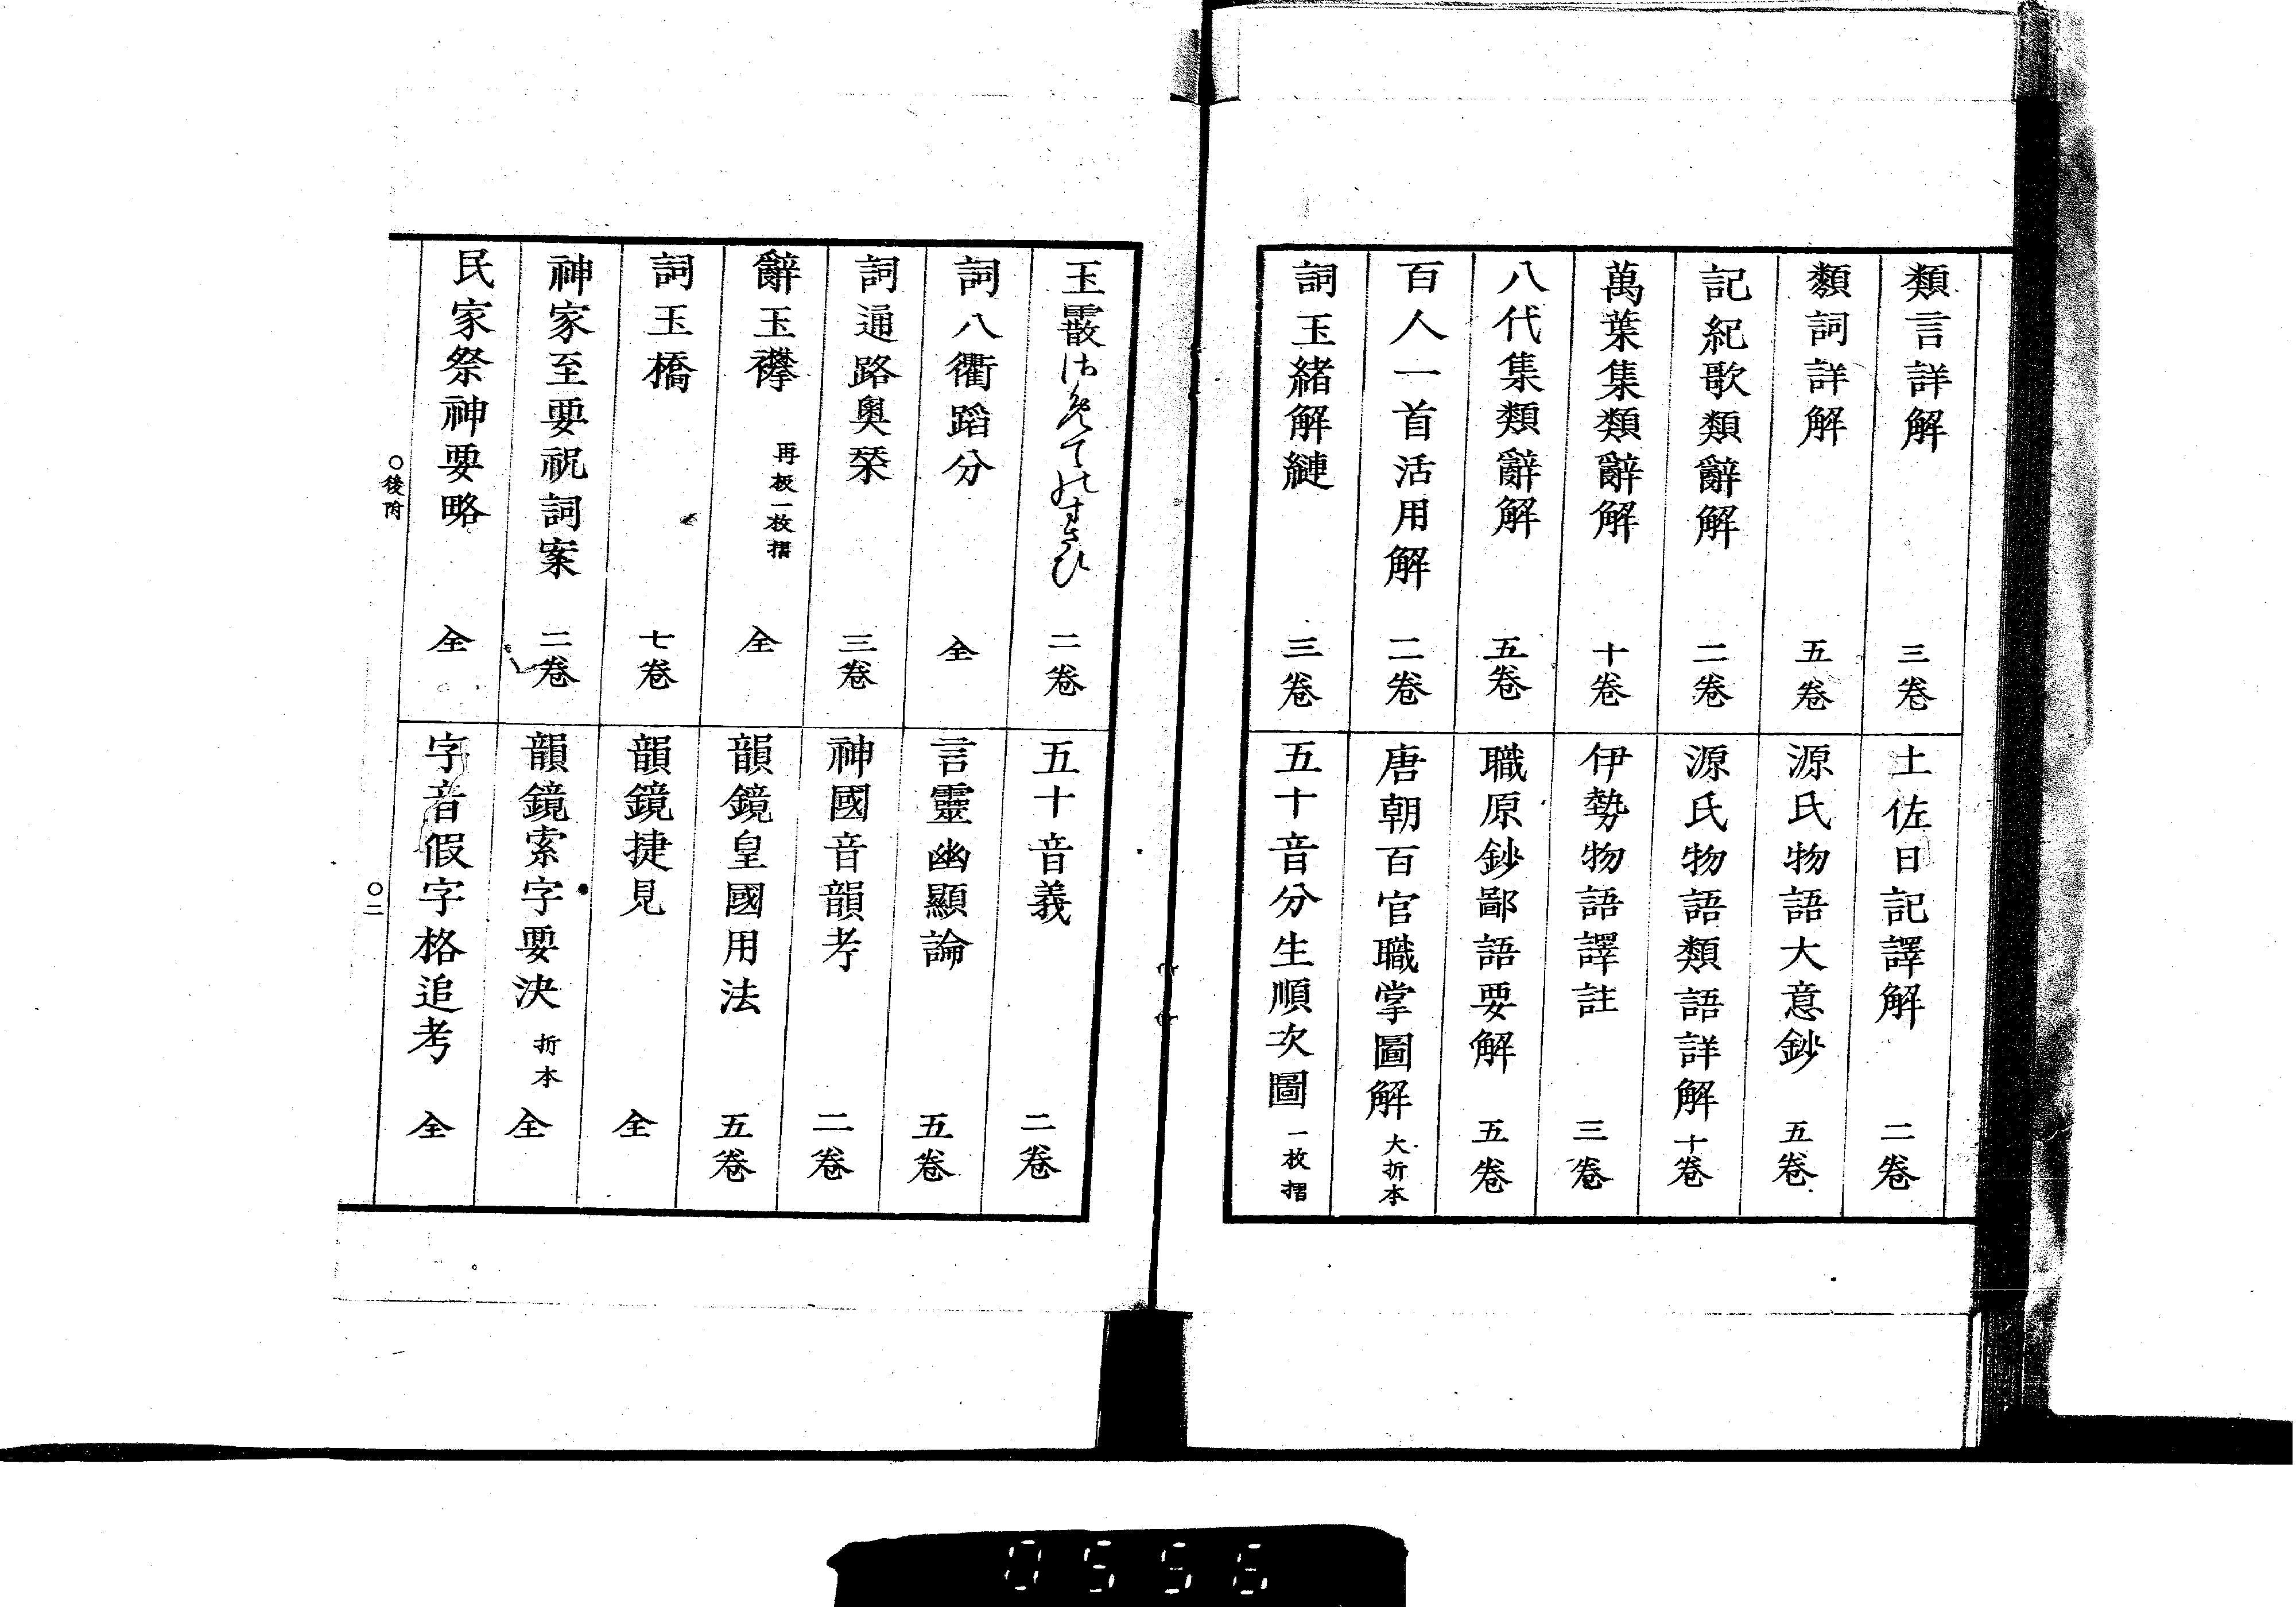 類言詳解 三卷
類詞詳解 五卷
記紀歌類辭解 二卷
萬葉集類辭解 十卷
八代集類辭解 五卷
百人一首活用解 二卷
詞玉緒解縺 三卷
土佐日記譯解 二卷
源氏物語大意鈔 五卷
源氏物語類語詳解 十卷
伊勢物語譯註 三卷
職原鈔鄙語要解 五卷
唐朝百官職掌圖解 大折本
五十音分生順次圖 一枚摺
玉霰 二卷
詞八衢蹈分 全
詞通路奥栞 三卷
辭玉襷 再板一枚摺 全
詞玉橋 七卷
神家至要祝詞案 二卷
民家祭神要略 全
五十音義 二卷
言靈幽顯論 五卷
神國音韻考 二卷
韻鏡皇國用法 五卷
韻鏡捷見 全
韻鏡索字要決 折本 全
字音假字格追考 全
○後附
○二
0556